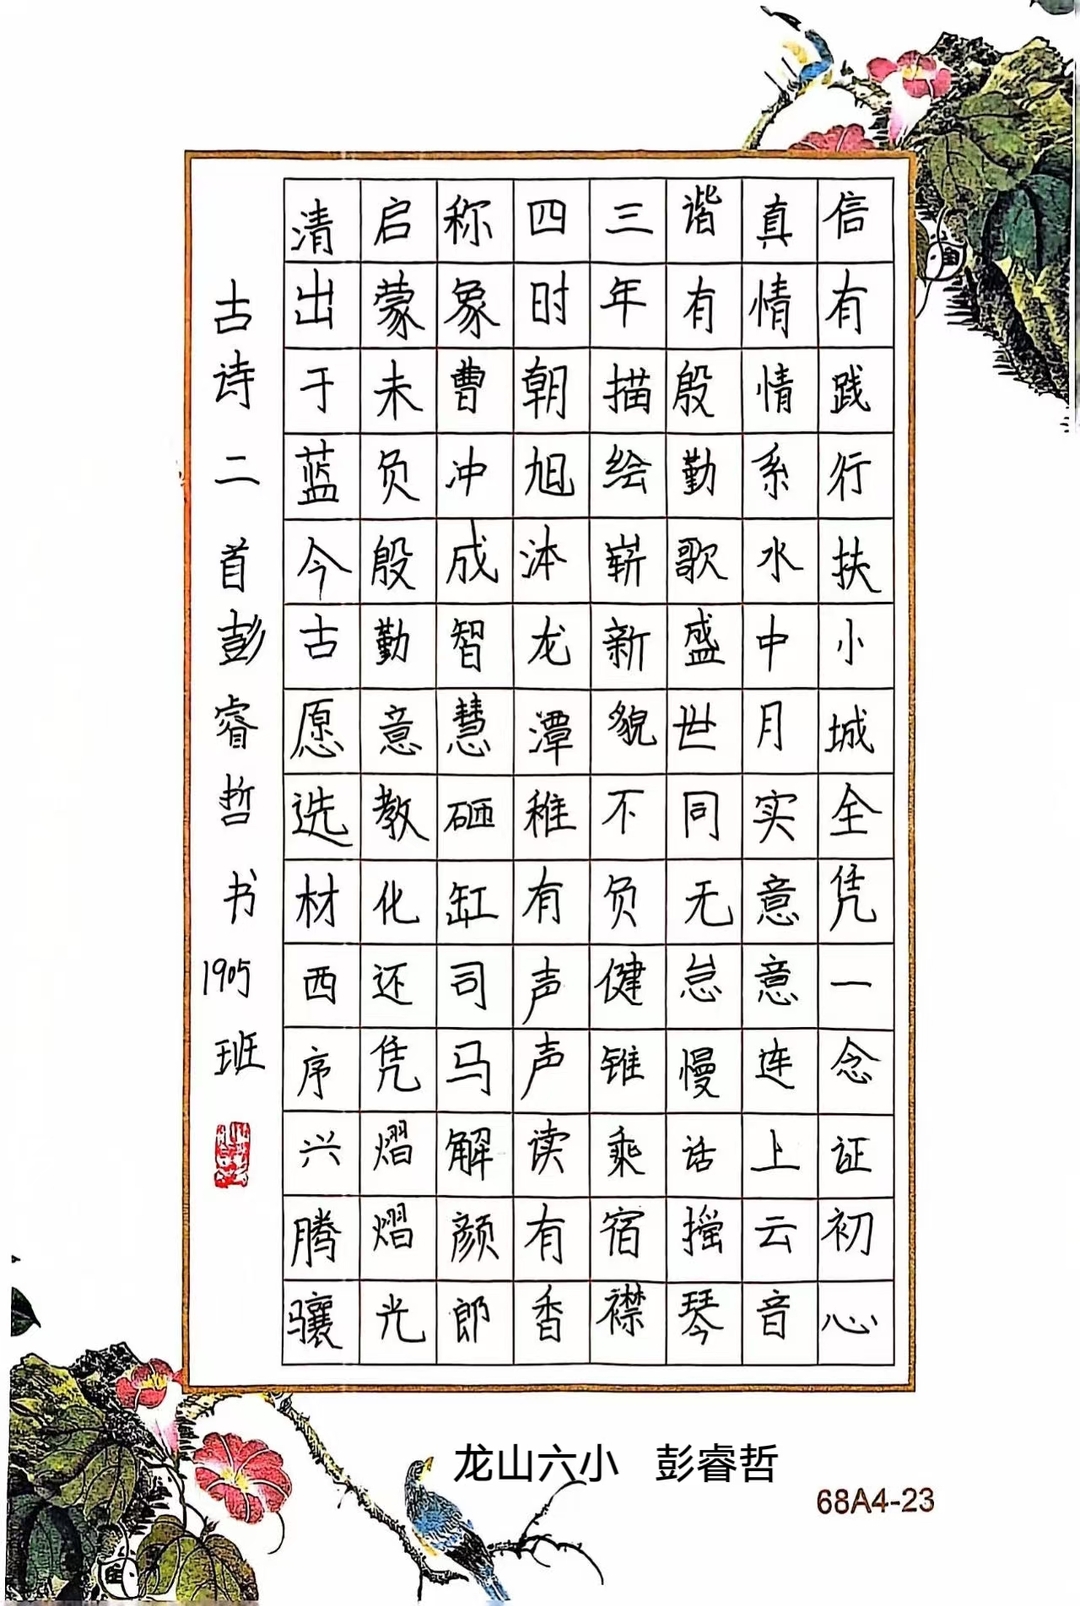 信有践行扶小城全凭一念证初心
真情情系水中月实意意连上云音
谐有殷勤歌盛世同无怠慢话摇琴
三年描绘崭新貌不负健锥乘宿襟
四时朝旭沐龙潭稚有声声读有香
称象曹冲成智慧砸缸司马解颜郎
启蒙未负殷勤意教化还凭熠熠光
清出于蓝今古愿选材西序兴腾骧
古诗二首彭睿哲书1905班
龙山六小 彭睿哲
68A4-23